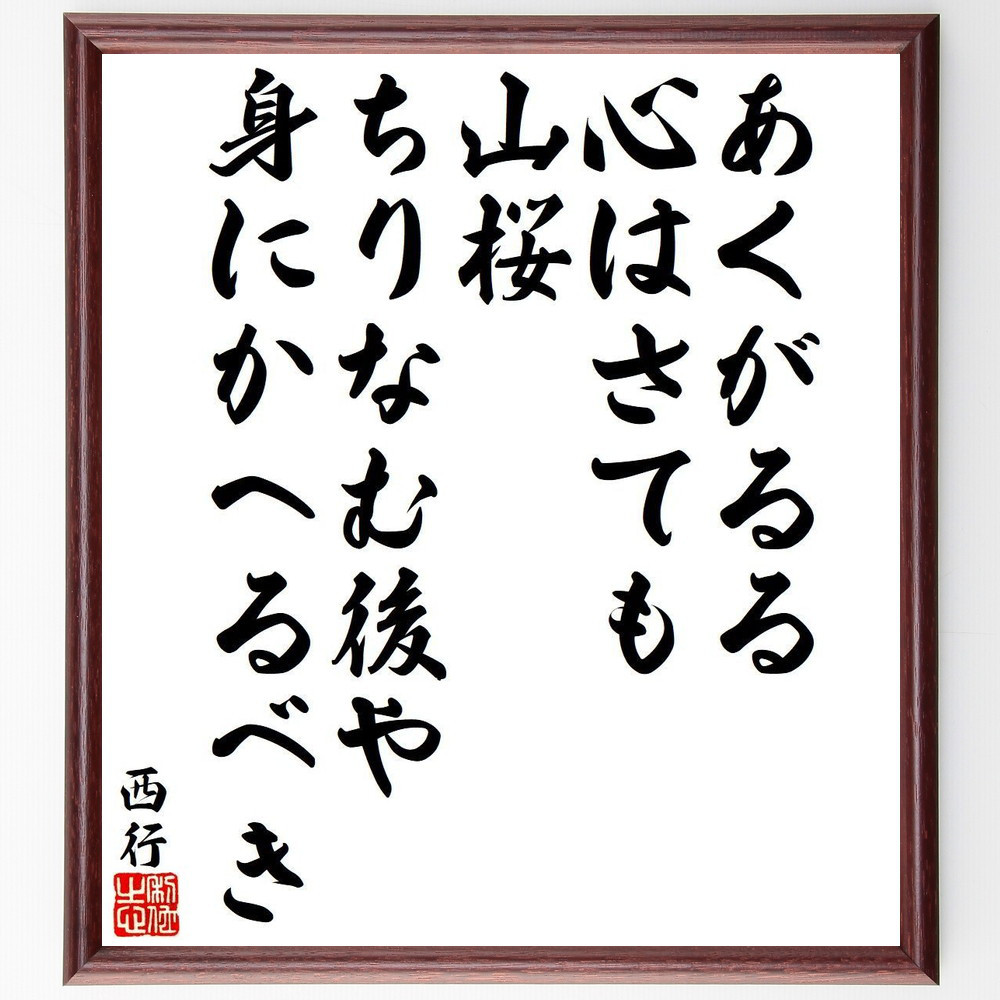 あくがるる
心はさても
山桜
ちりなむ後や
身にかへるべき
西行